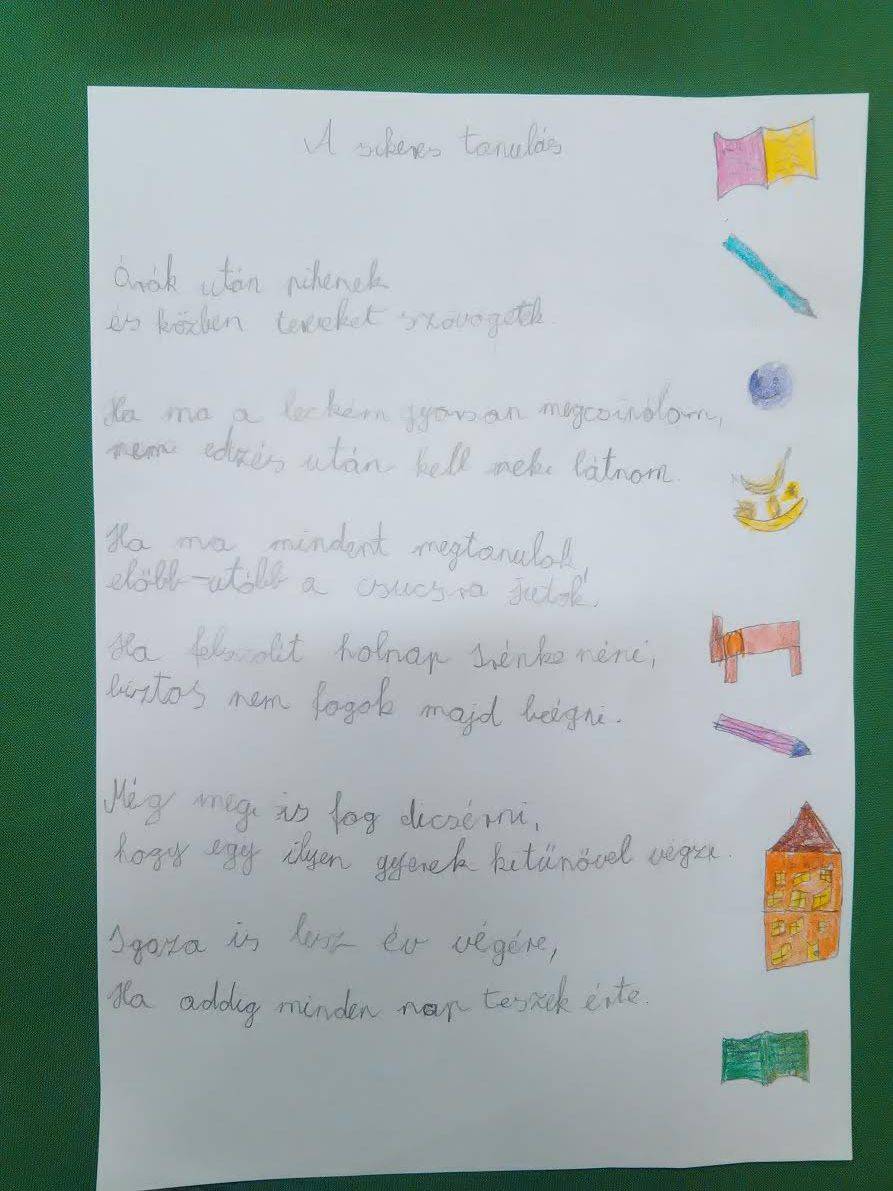 A sikeres tanulás
Órák után pihenek
és közben terveket szövögetek.
Ha ma a leckém gyorsan megcsinálom,
nem edzés után kell neki látnom.
Ha ma mindent megtanulok,
előbb-utóbb a csúcsra jutok.
Ha felszólít holnap Irénke néni,
biztos nem fogok majd beégni.
Még meg is fog dicsérni,
hogy egy ilyen gyerek kitűnővel végzi.
Igaza is lesz év végére,
Ha addig minden nap teszek érte.